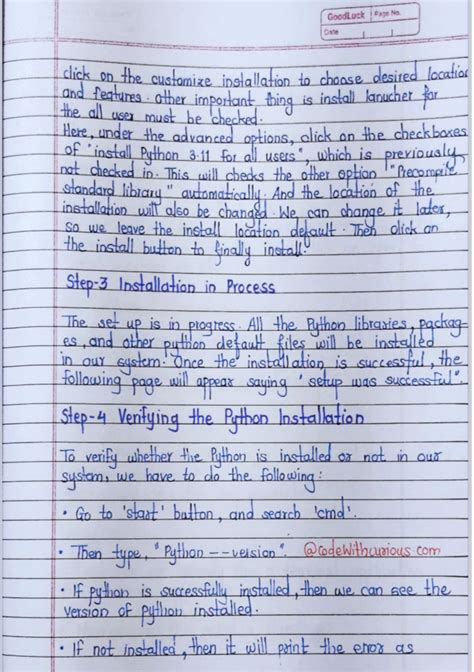 GoodLuck Page No.
Date
click on the customize installation to choose desired location
and features. other important thing is install lanucher for
the all user must be checked.
Here, under the advanced options, click on the checkboxes
of "install Python 3.11 for all users", which is previously
not checked in. This will checks the other option "Precompile
standard library" automatically. And the location of the
installation will also be changed. We can change it later,
so we leave the install location default. Then click on
the install button to finally install.
Step-3 Installation in Process
The set up is in progress. All the Python libraries, packag-
es, and other python default files will be installed
in our system. Once the installation is successful, the
following page will appear saying "setup was successful".
Step-4 Verifying the Python Installation
To verify whether the Python is installed or not in our
system, we have to do the following:
• Go to 'start' button, and search 'cmd'.
• Then type, "Python --version". @codeWithcurious.com
• If python is successfully installed, then we can see the
version of python installed.
• If not installed, then it will print the error as